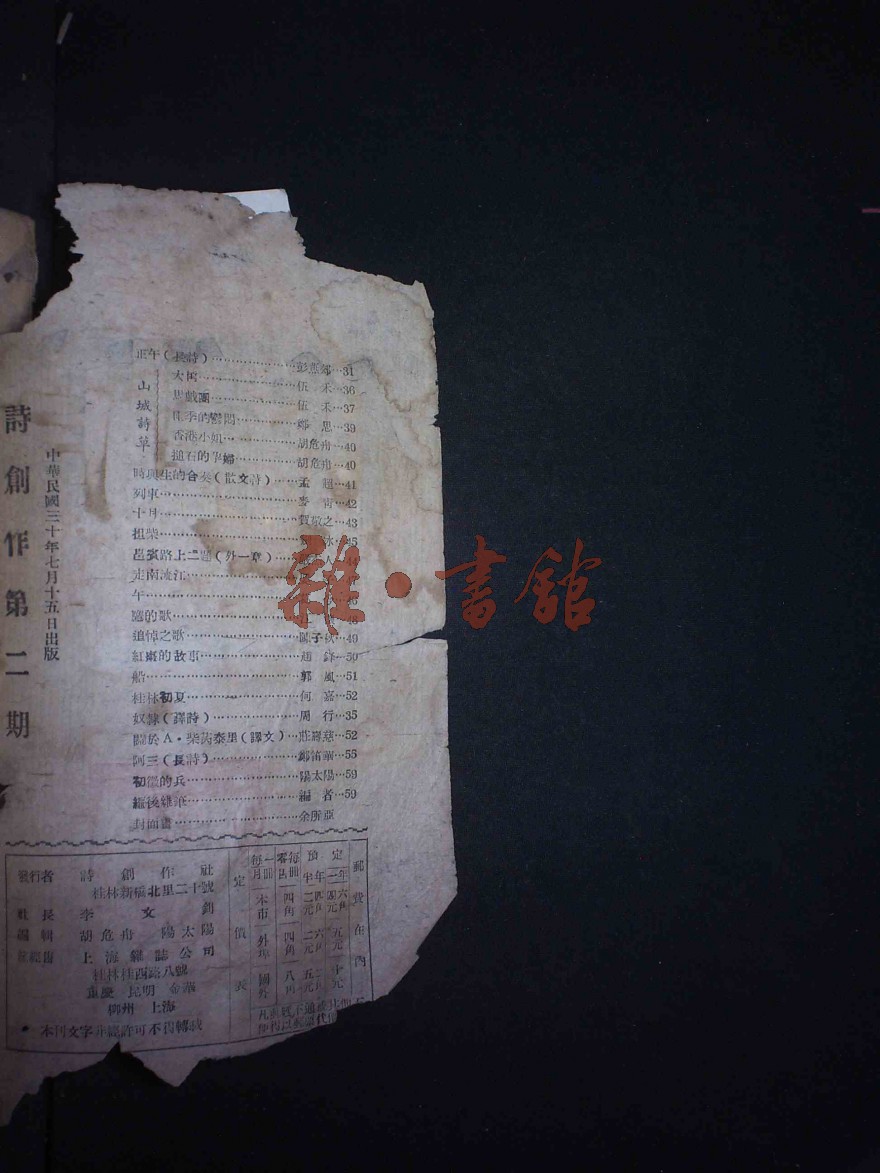 詩創作第二期
中華民國三十年七月十五日出版
正午(長詩)……彭燕郊…31
山城詩草
伍禾…36
馬戲團……伍禾…37
鄭思…39
香港小姐……胡危舟…40
搥石的寡婦……胡危舟…40
時與生的合奏(散文詩)…孟超…41
列車……麥青…42
十月……賀敬之…43
担柴
路上二題(外一章)
走南流江
午
的歌
追悼之歌……陳子秋…49
紅棗的故事……趙鋒…50
船……郭風…51
桂林初夏……何嘉…52
奴隸(譯詩)……周行…35
關於A·柴芮泰里(譯文)…莊壽慈…52
阿三(長詩)……鄭笛華…55
初徵的兵……陽太陽…59
編後雜筆……編者…59
封面畫……余所亞
發行者 詩創作社
桂林新橋北里二十號
社長 李文釗
編輯 胡危舟 陽太陽
總經售 上海雜誌公司
桂林桂西路八號
重慶 昆明 金華
柳州 上海
·本刊文字非經許可不得轉載
定價表
每月一冊
零售每冊
預定
半年
一年
本市
四角
二元四角
四元六角
外埠
四角
二元六角
五元
國外
八角
五元
十元
郵費在內
雜·書館